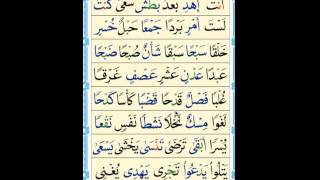 اَنْتَ اِهْدِ بَعْدَ بَطْشَ سَعْىَ كُنْتَ
لَسْتَ اَمْرِ بَرْدًا جَمْعًا حَبْلٌ خُسْرٍ
خَلْقًا سَبْحًا سَبْقًا شَاْنٌ صُبْحًا ضَبْحًا
عَبْدًا عَدْنٍ عَشْرٍ عَصْفٍ غَرْقًا
غُلْبًا فَصْلٌ قَدْحًا قَضْبًا كَاْسًا كَدْحًا
لَغْوًا مِسْكٌ نَخْلًا نَشْطًا نَفْسٍ نَقْعًا
يُسْرًا اَلْقٰى تَرْضٰى تَنْسٰى يَخْشٰى يَسْعٰى
يَتْلُوْا يَدْعُوْا تَجْرِىْ يَهْدِىْ يُغْنِىْ